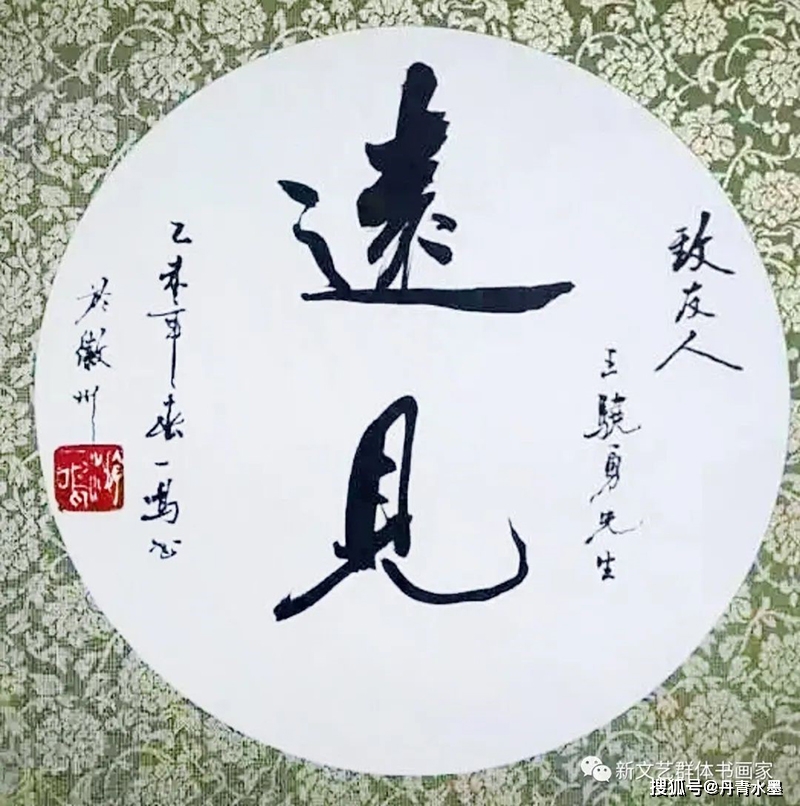 致友人
王驍勇先生
遠見
乙未年春一鳴书
於徽州
新文艺群体书画家
搜狐号@丹青水墨